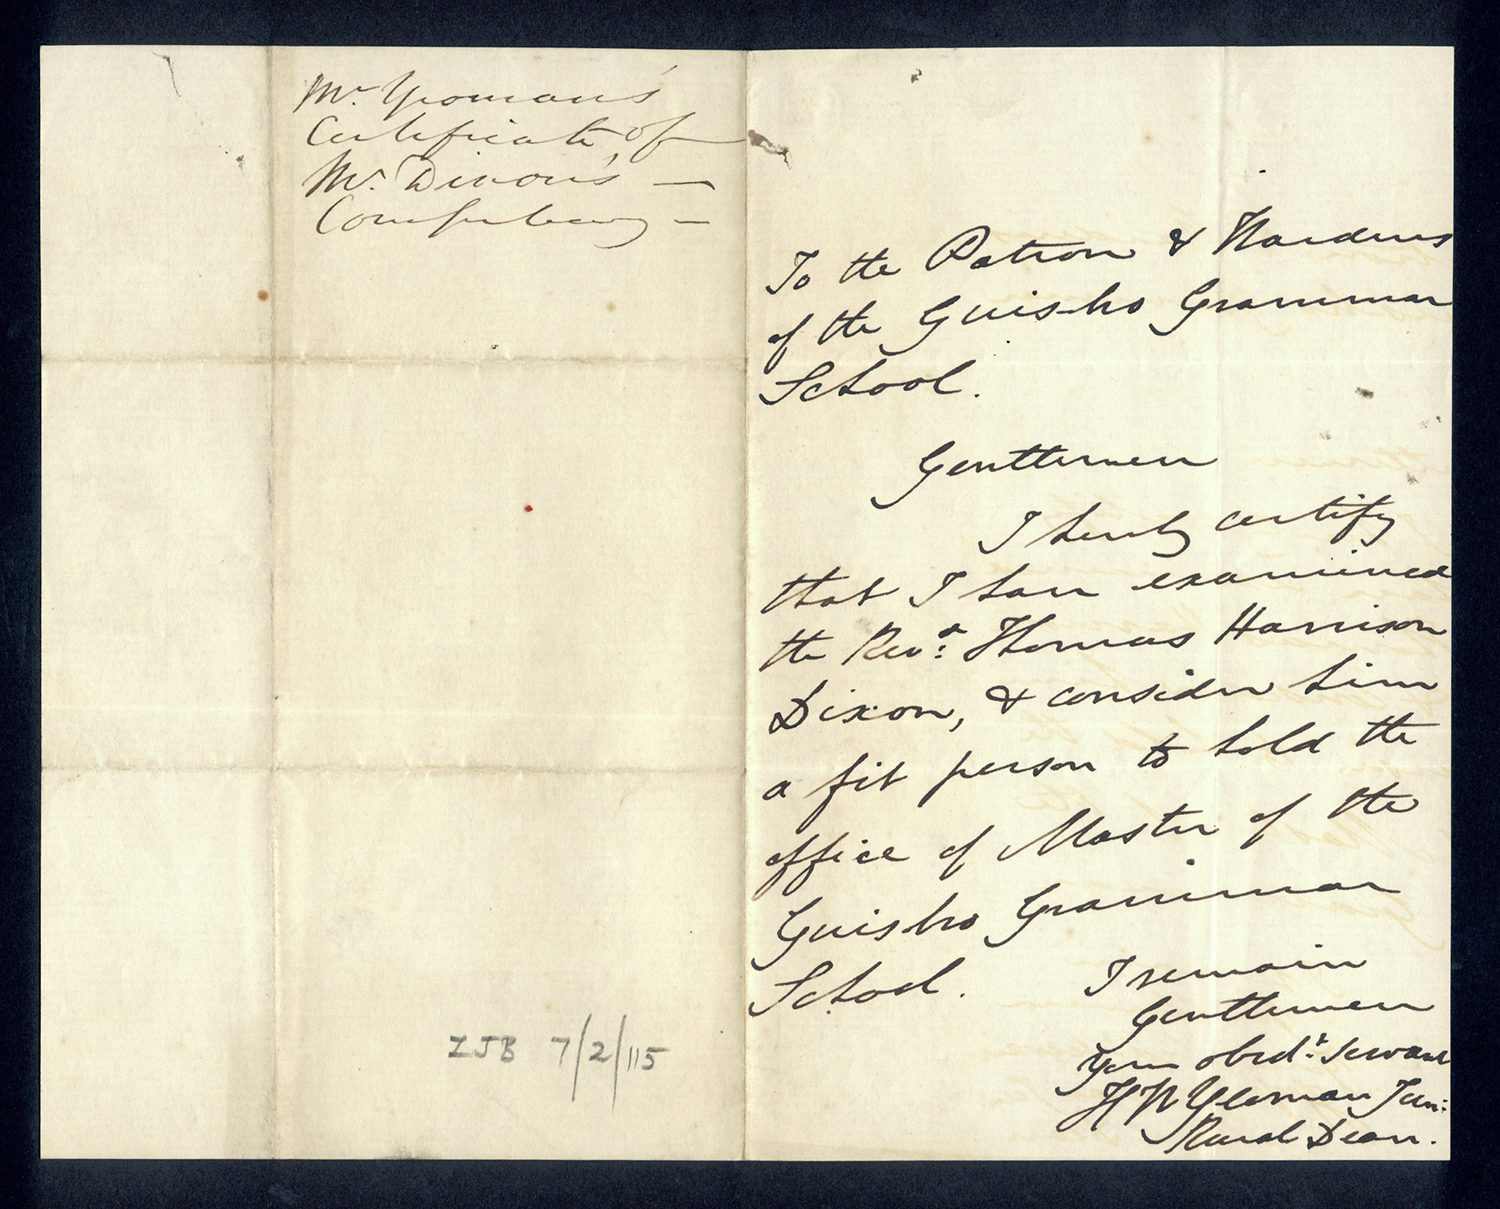 Mr. Yeoman's
Certificate of
Mr. Dixon's —
Competency —
ZJB 7/2/115
To the Patron & Wardens
of the Guisbro Grammar
School.
Gentlemen
I hereby certify
that I have examined
the Revd: Thomas Harrison
Dixon, & consider him
a fit person to hold the
office of Master of the
Guisbro Grammar
School. I remain
Gentlemen
Your obedt: Servant
H W Yeoman Jun:
Rural Dean.